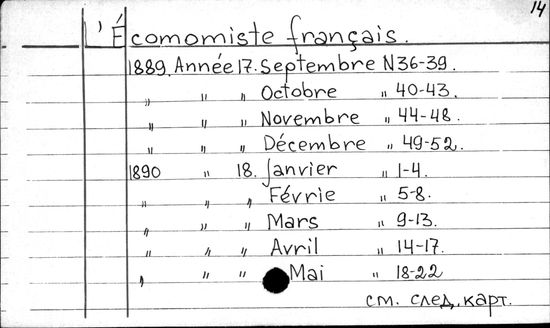 14
L'Écomomiste français.
1889. Année 17. Septembre N 36-39.
„ „ „ Octobre „ 40-43.
„ „ „ Novembre „ 44-48.
„ „ „ Décembre „ 49-52.
1890 „ 18. Janvier „ 1-4.
„ „ „ Févrie „ 5-8.
„ „ „ Mars „ 9-13.
„ „ „ Avril „ 14-17.
„ „ „ Mai „ 18-22
см. след. карт.